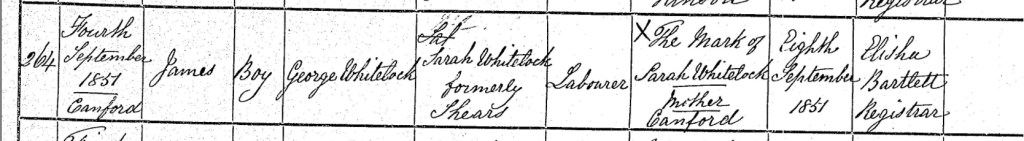 Registrar
264
Fourth
September
1851
Canford
James
Boy
George Whitelock
Sarah Whitelock
formerly
Shears
Labourer
X The Mark of
Sarah Whitelock
Mother
Canford
Eighth
September
1851
Elisha
Bartlett
Registrar